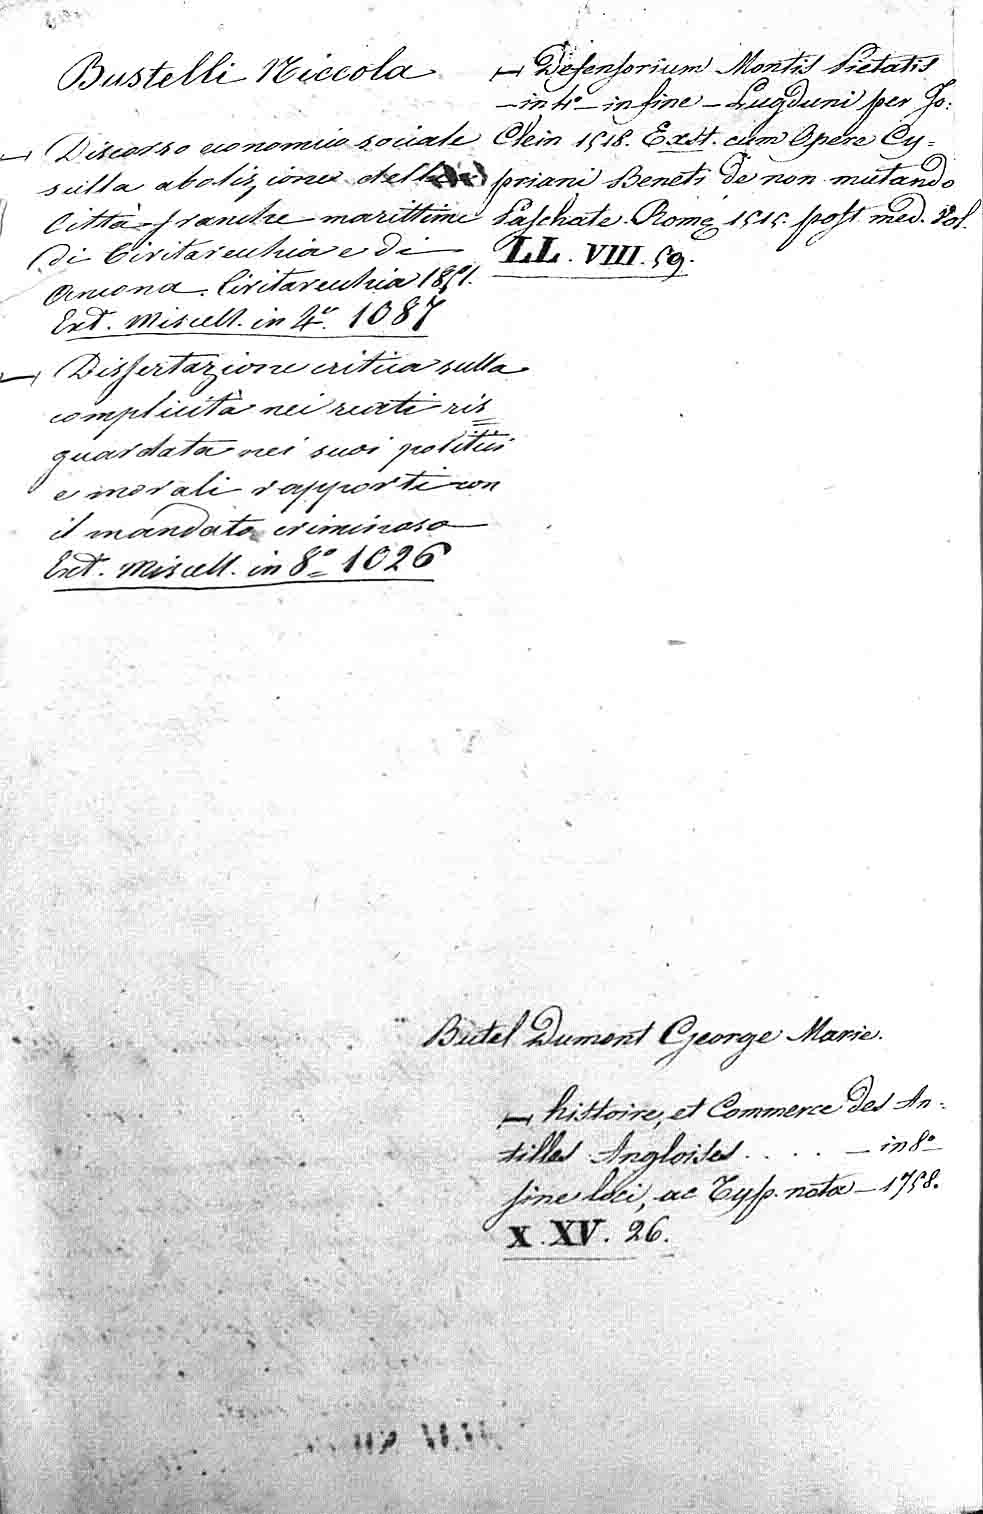 Bustelli Niccola
— Discorso economico sociale
sulla abolizione delle
Città franche marittime
di Civitavecchia e di
Ancona. Civitavecchia 1851.
Ext. Miscell. in 4º. 1087
— Dissertazione critica sulla
complicità nei reati ris
guardata nei suoi politici
e morali rapporti con
il mandato criminoso
Ext. Miscell. in 8º 1026
— Defensorium Montis Pietatis
— in 4º — in fine — Lugduni per Jo:
Clein 1518. Exst. cum Opere Cy=
priani Beneti de non mutando
Paschate. Romę 1515. post med. Vol.
LL. VIII. 59.
Butel Dumont George Marie.
— histoire, et Commerce des An=
tilles Angloises . . . . — in 8º —
sine loci, ac Typ. nota — 1758.
X. XV. 26.